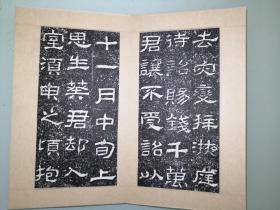 去災變拜掖庭
待詔賜錢千萬
君讓不受詔以
十一月中旬上
思生葵君却入
室須臾之頃抱